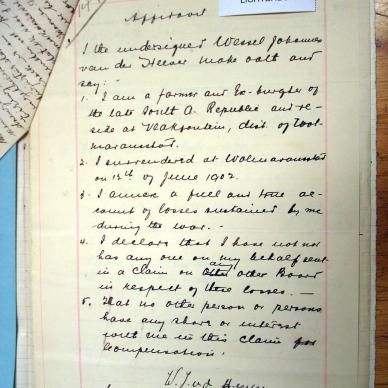 Affidavit
I the undersigned Wessel Johannes
van der Heever make oath and
say:-
1. I am a farmer and Ex-burgher of
the late South A. Republic and re-
side at Vlakfontein, dist. of Wol-
maransstad.
2. I surrendered at Wolmaransstad
on 12th of June 1902.
3. I annex a full and true ac-
count of losses sustained by me
during the war. -
4. I declare that I have not nor
has any one on my behalf sent
in a claim on any other Board
in respect of these losses. -
5. That no other person or persons
have any share or interest
with me in this claim for
compensation.
W. J. vd Heever